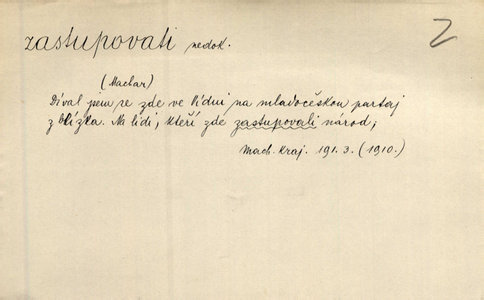 zastupovati nedok.
Z
(Machar)
Díval jsem se zde ve Vídni na mladočeskou partaj
z blízka. Na lidi, kteří zde zastupovali národ;
Mach. Kraj. 191. 3. (1910.)